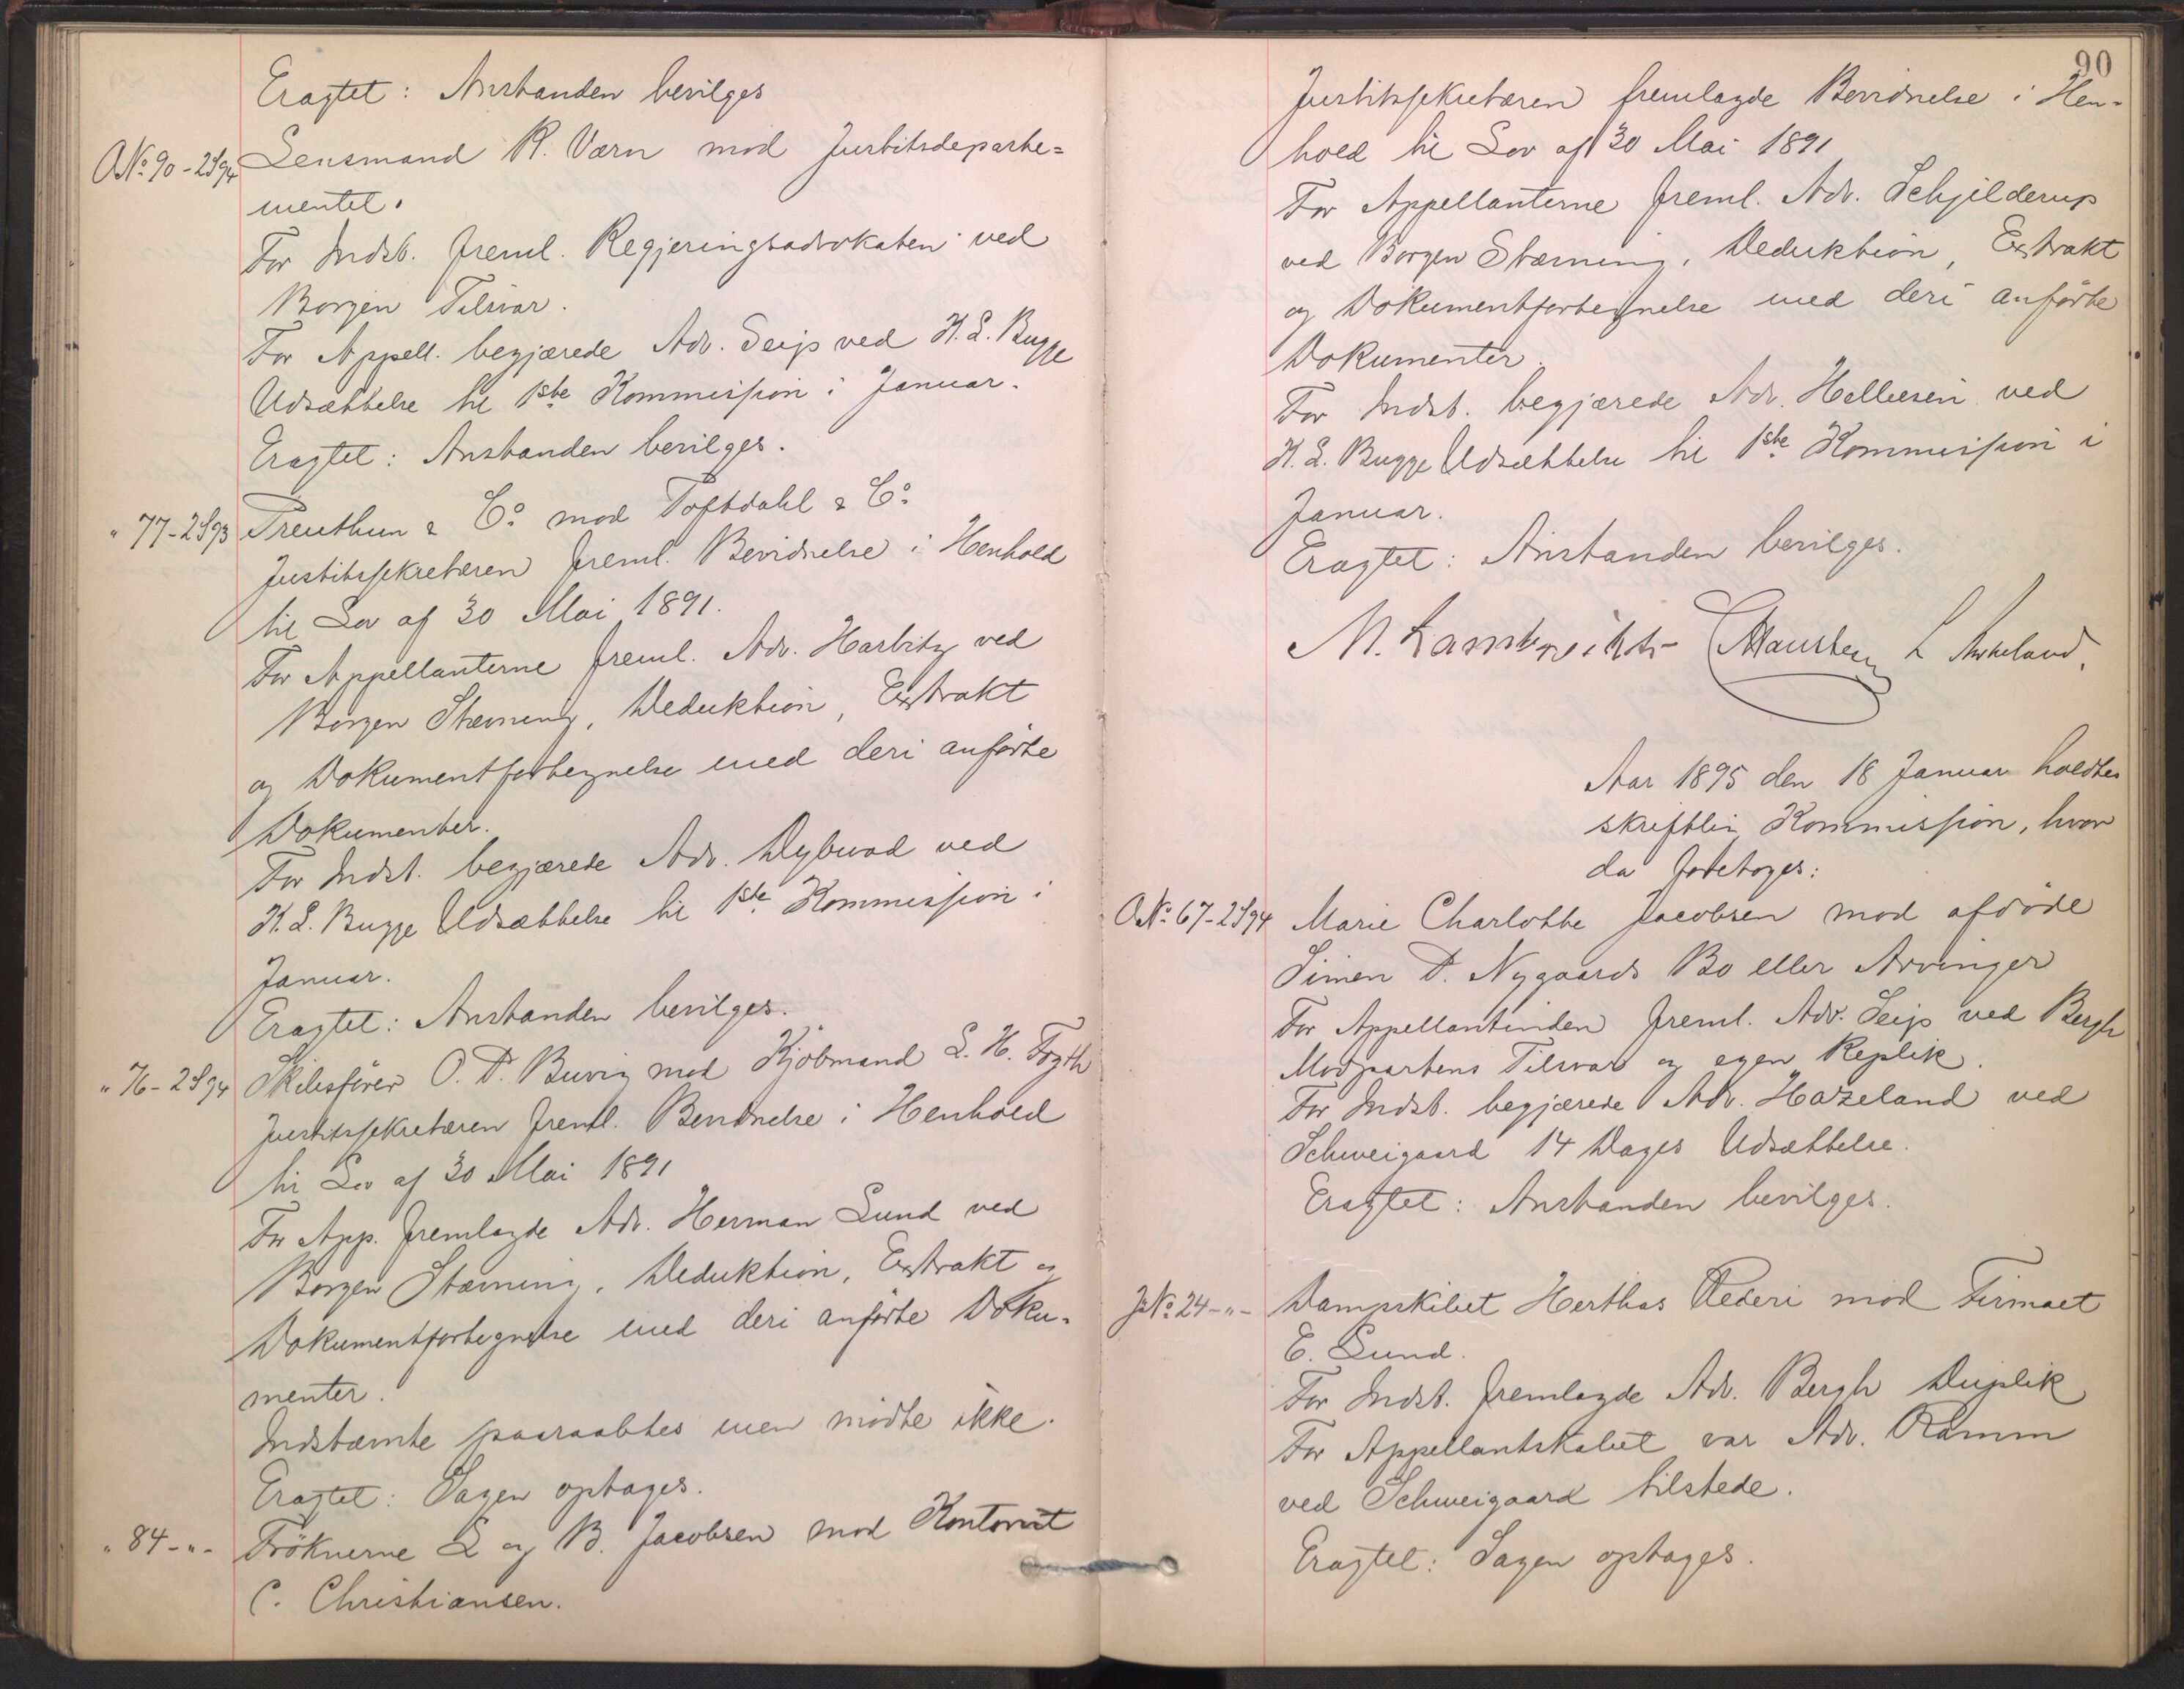 Eragtet: Anstanden bevilges
ONo 90-2S94 Lensmand R. Værn mod Justitsdeparte=
mentet.
For Indst. freml. Regjeringsadvokaten ved
Borgen Tilsvar.
For Appell. begjærede Adv. Seip ved K. L. Bugge
Udsættelse til 1ste Kommission i Januar.
Eragtet: Anstanden bevilges.
" 77-2S93 Treuthun & Co mod Toftdahl & Co
Justitssekretæren freml. Bevidnelse i Henhold
til Lov af 30 Mai 1891.
For Appellanterne freml. Adv. Harbitz ved
Borgen Stævning, Deduktion, Extrakt
og Dokumentfortegnelse med deri anførte
Dokumenter.
For Indst. begjærede Adv. Dybwad ved
K. L. Bugge Udsættelse til 1ste Kommission i
Januar.
Eragtet: Anstanden bevilges.
" 76-2S94 Skibsfører O. T. Buvig mod Kjöbmand L. H. Fogth
Justitssekretæren freml. Bevidnelse i Henhold
til Lov af 30 Mai 1891
For App. fremlagde Adv. Herman Lund ved
Borgen Stævning, Deduktion, Extrakt og
Dokumentfortegnelse med deri anførte Doku=
menter.
Indstævnte paaraabtes men mödte ikke.
Eragtet: Sagen optages.
" 84-"- Frøknerne L og B. Jacobsen mod Kontorist
C. Christiansen.
90
Justitssekretæren fremlagde Bevidnelse i Hen=
hold til Lov af 30 Mai 1891
For Appellanterne freml. Adv. Schjelderup
ved Borgen Stævning, Deduktion, Extrakt
og Dokumentfortegnelse med deri anførte
Dokumenter.
For Indst. begjærede Adv. Helliesen ved
K. L. Bugge Udsættelse til 1ste Kommission i
Januar.
Eragtet: Anstanden bevilges.
M. Lambrechts L Aukland.
Aar 1895 den 18 Januar holdtes
skriftlig Kommission, hvor
da foretoges:
ONo 67-2S94 Marie Charlotte Jacobsen mod afdøde
Simen T. Nygaards Bo eller Arvinger
For Appellantinden freml. Adv. Seip ved Bergh
Modpartens Tilsvar og egen Replik.
For Indst. begjærede Adv. Hazeland ved
Schweigaard 14 Dages Udsættelse.
Eragtet: Anstanden bevilges.
JNo 24-"- Dampskibet Herthas Rederi mod Firmaet
E. Lund.
For Indst. fremlagde Adv. Bergh Duplik
For Appellantskabet var Adv. Ramm
ved Schweigaard tilstede.
Eragtet: Sagen optages.